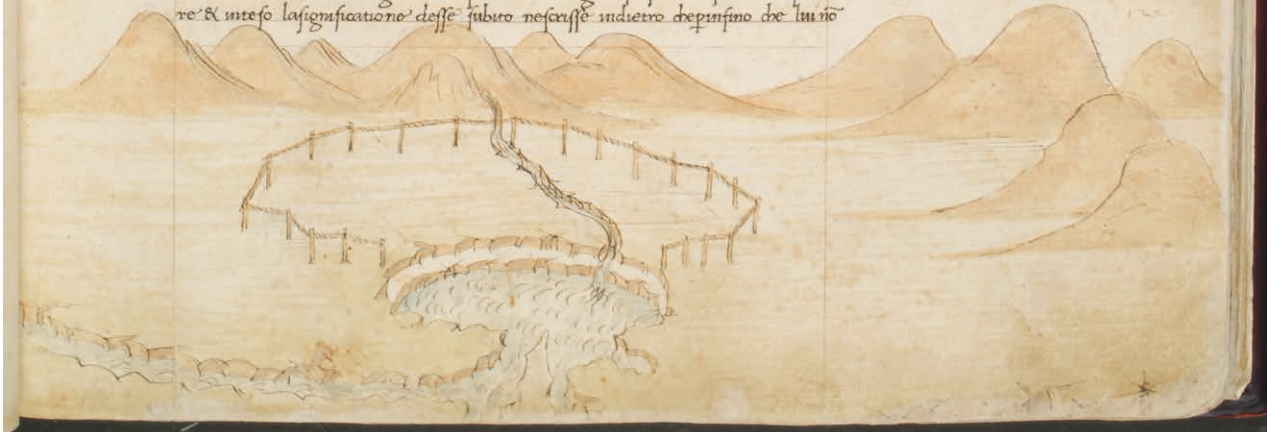 re & inteso lasignificatione desse subito nescrisse indietro cheꝑinfino che lui nō